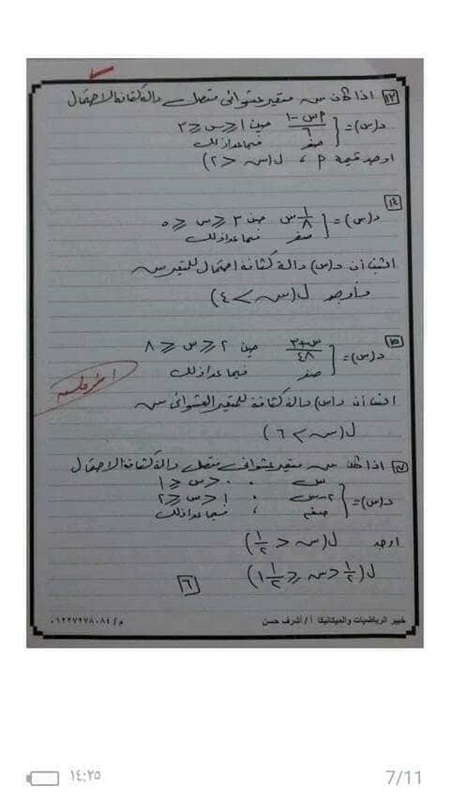 ١٣ اذا كان س متغير عشوائى متصل دالة كثافة الاحتمال
د(س) = { (٢س - ١)/٦ حين ١ ≤ س ≤ ٣
صفر فيما عدا ذلك
اوجد قيمة P ، ل(س < ٢)
١٤ د(س) = { ١/٨ س حين ٣ ≤ س ≤ ٥
صفر فيما عدا ذلك
اثبت أن د(س) دالة كثافة احتمال للمتغير س
د(س) = { (س+٣)/٤٨ حين ٢ ≤ س ≤ ٨
صفر فيما عدا ذلك
اثبت أن د(س) دالة كثافة للمتغير العشوائى س
اذا كان س متغير عشوائى متصل دالة كثافة الاحتمال
د(س) = { س ، ٠ < س ≤ ١
٢-س ، ١ < س ≤ ٢
صفر ، فيما عدا ذلك
اوجد ل(س < ١/٢)
ل(١/٢ < س ≤ ١ ١/٢)
٦
خبير الرياضيات والميكانيكا أ / أشرف حسن م/ ٠١٢٢٧٢٧٨٠٨٤
١٤:٢٥ 7/11